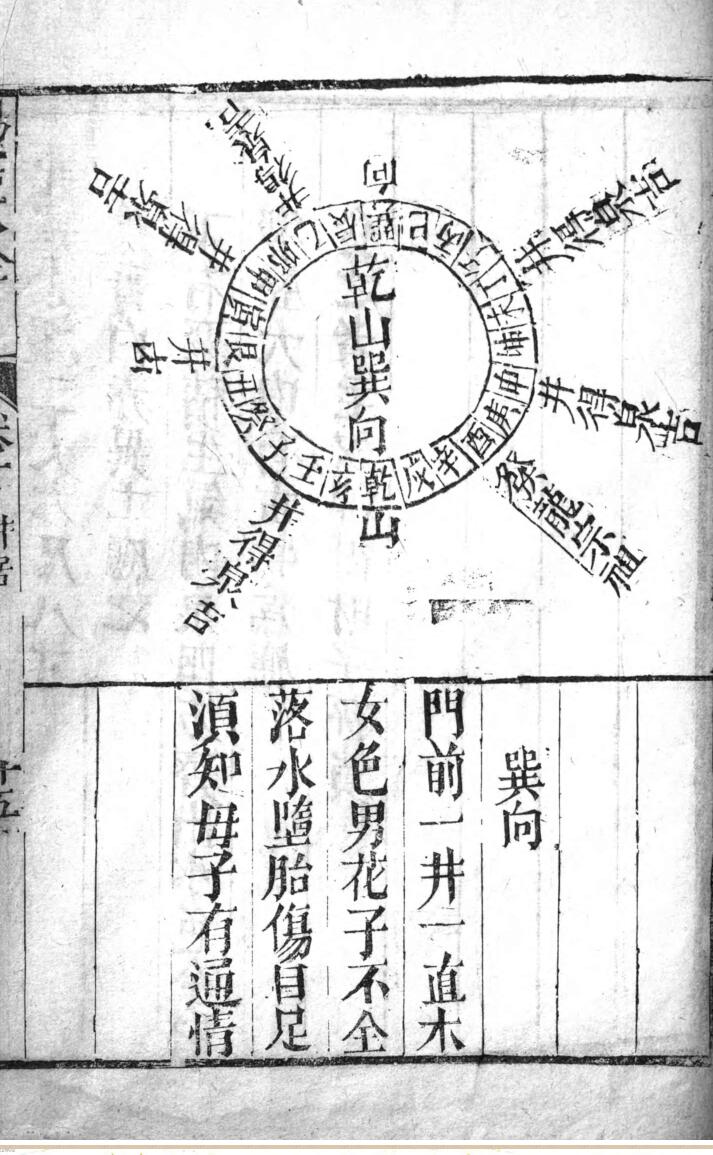 向
乾山巽向
山
巽
巳
丙
午
丁
未
坤
申
庚
酉
辛
戌
乾
亥
壬
子
癸
丑
艮
寅
甲
卯
乙
辰
井得泉吉
井得泉吉
發龍宗祖
井得泉吉
井凶
井得泉吉
井得泉吉
巽向
門前一井一直木
女色男花子不全
落水墮胎傷目足
須知母子有通情